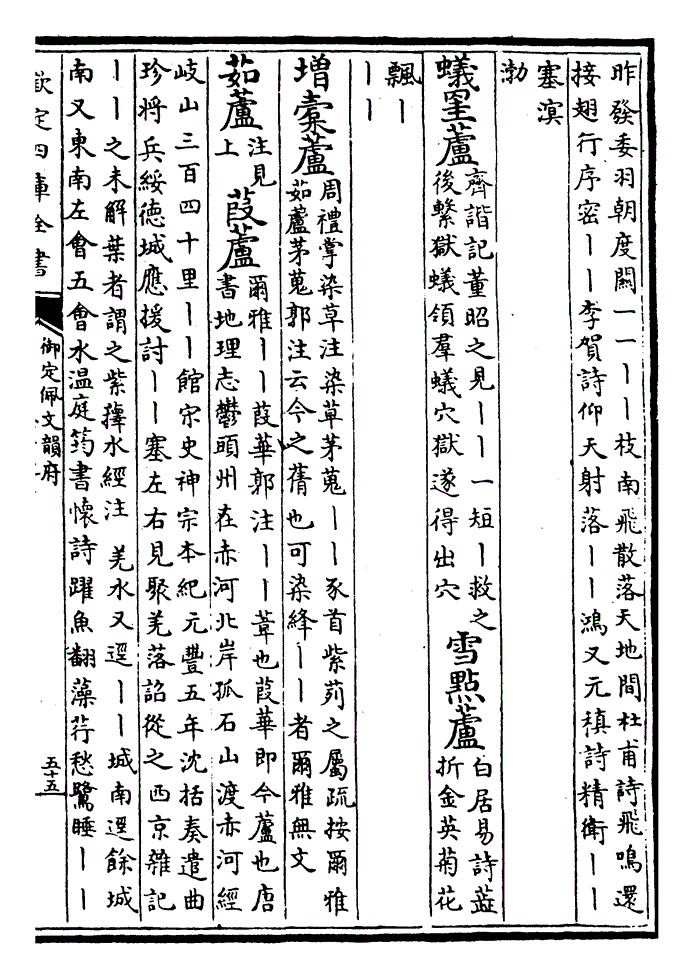 昨發委羽朝度關一一丨丨枝南飛散落天地間杜甫詩飛鳴還
接翅行序密丨丨李賀詩仰天射落丨丨鴻又元稹詩精衛丨丨
塞溟
渤
蟻䍐蘆齊諧記董昭之見丨丨一短丨救之
後繫獄蟻領羣蟻穴獄遂得出穴
雪點蘆白居易詩葢
折金英菊花
飄丨
丨丨
增橐蘆周禮掌染草注染草茅蒐丨丨豕首紫茢之屬疏按爾雅
茹蘆茅蒐郭注云今之蒨也可染絳丨丨者爾雅無文
茹蘆注見
上
葭蘆爾雅丨丨葭華郭注丨丨葦也葭華即今蘆也唐
書地理志鬱頭州在赤河北岸孤石山渡赤河經
岐山三百四十里丨丨館宋史神宗本紀元豐五年沈括奏遣曲
珍將兵綏德城應援討丨丨塞左右見聚羌落詔從之西京雜記
丨丨之未解葉者謂之紫蘀水經注 羌水又逕丨丨城南逕餘城
南又東南左會五會水温庭筠書懷詩躍魚翻藻荇愁鷺睡丨丨
欽定四庫全書
御定佩文韻府
五十五